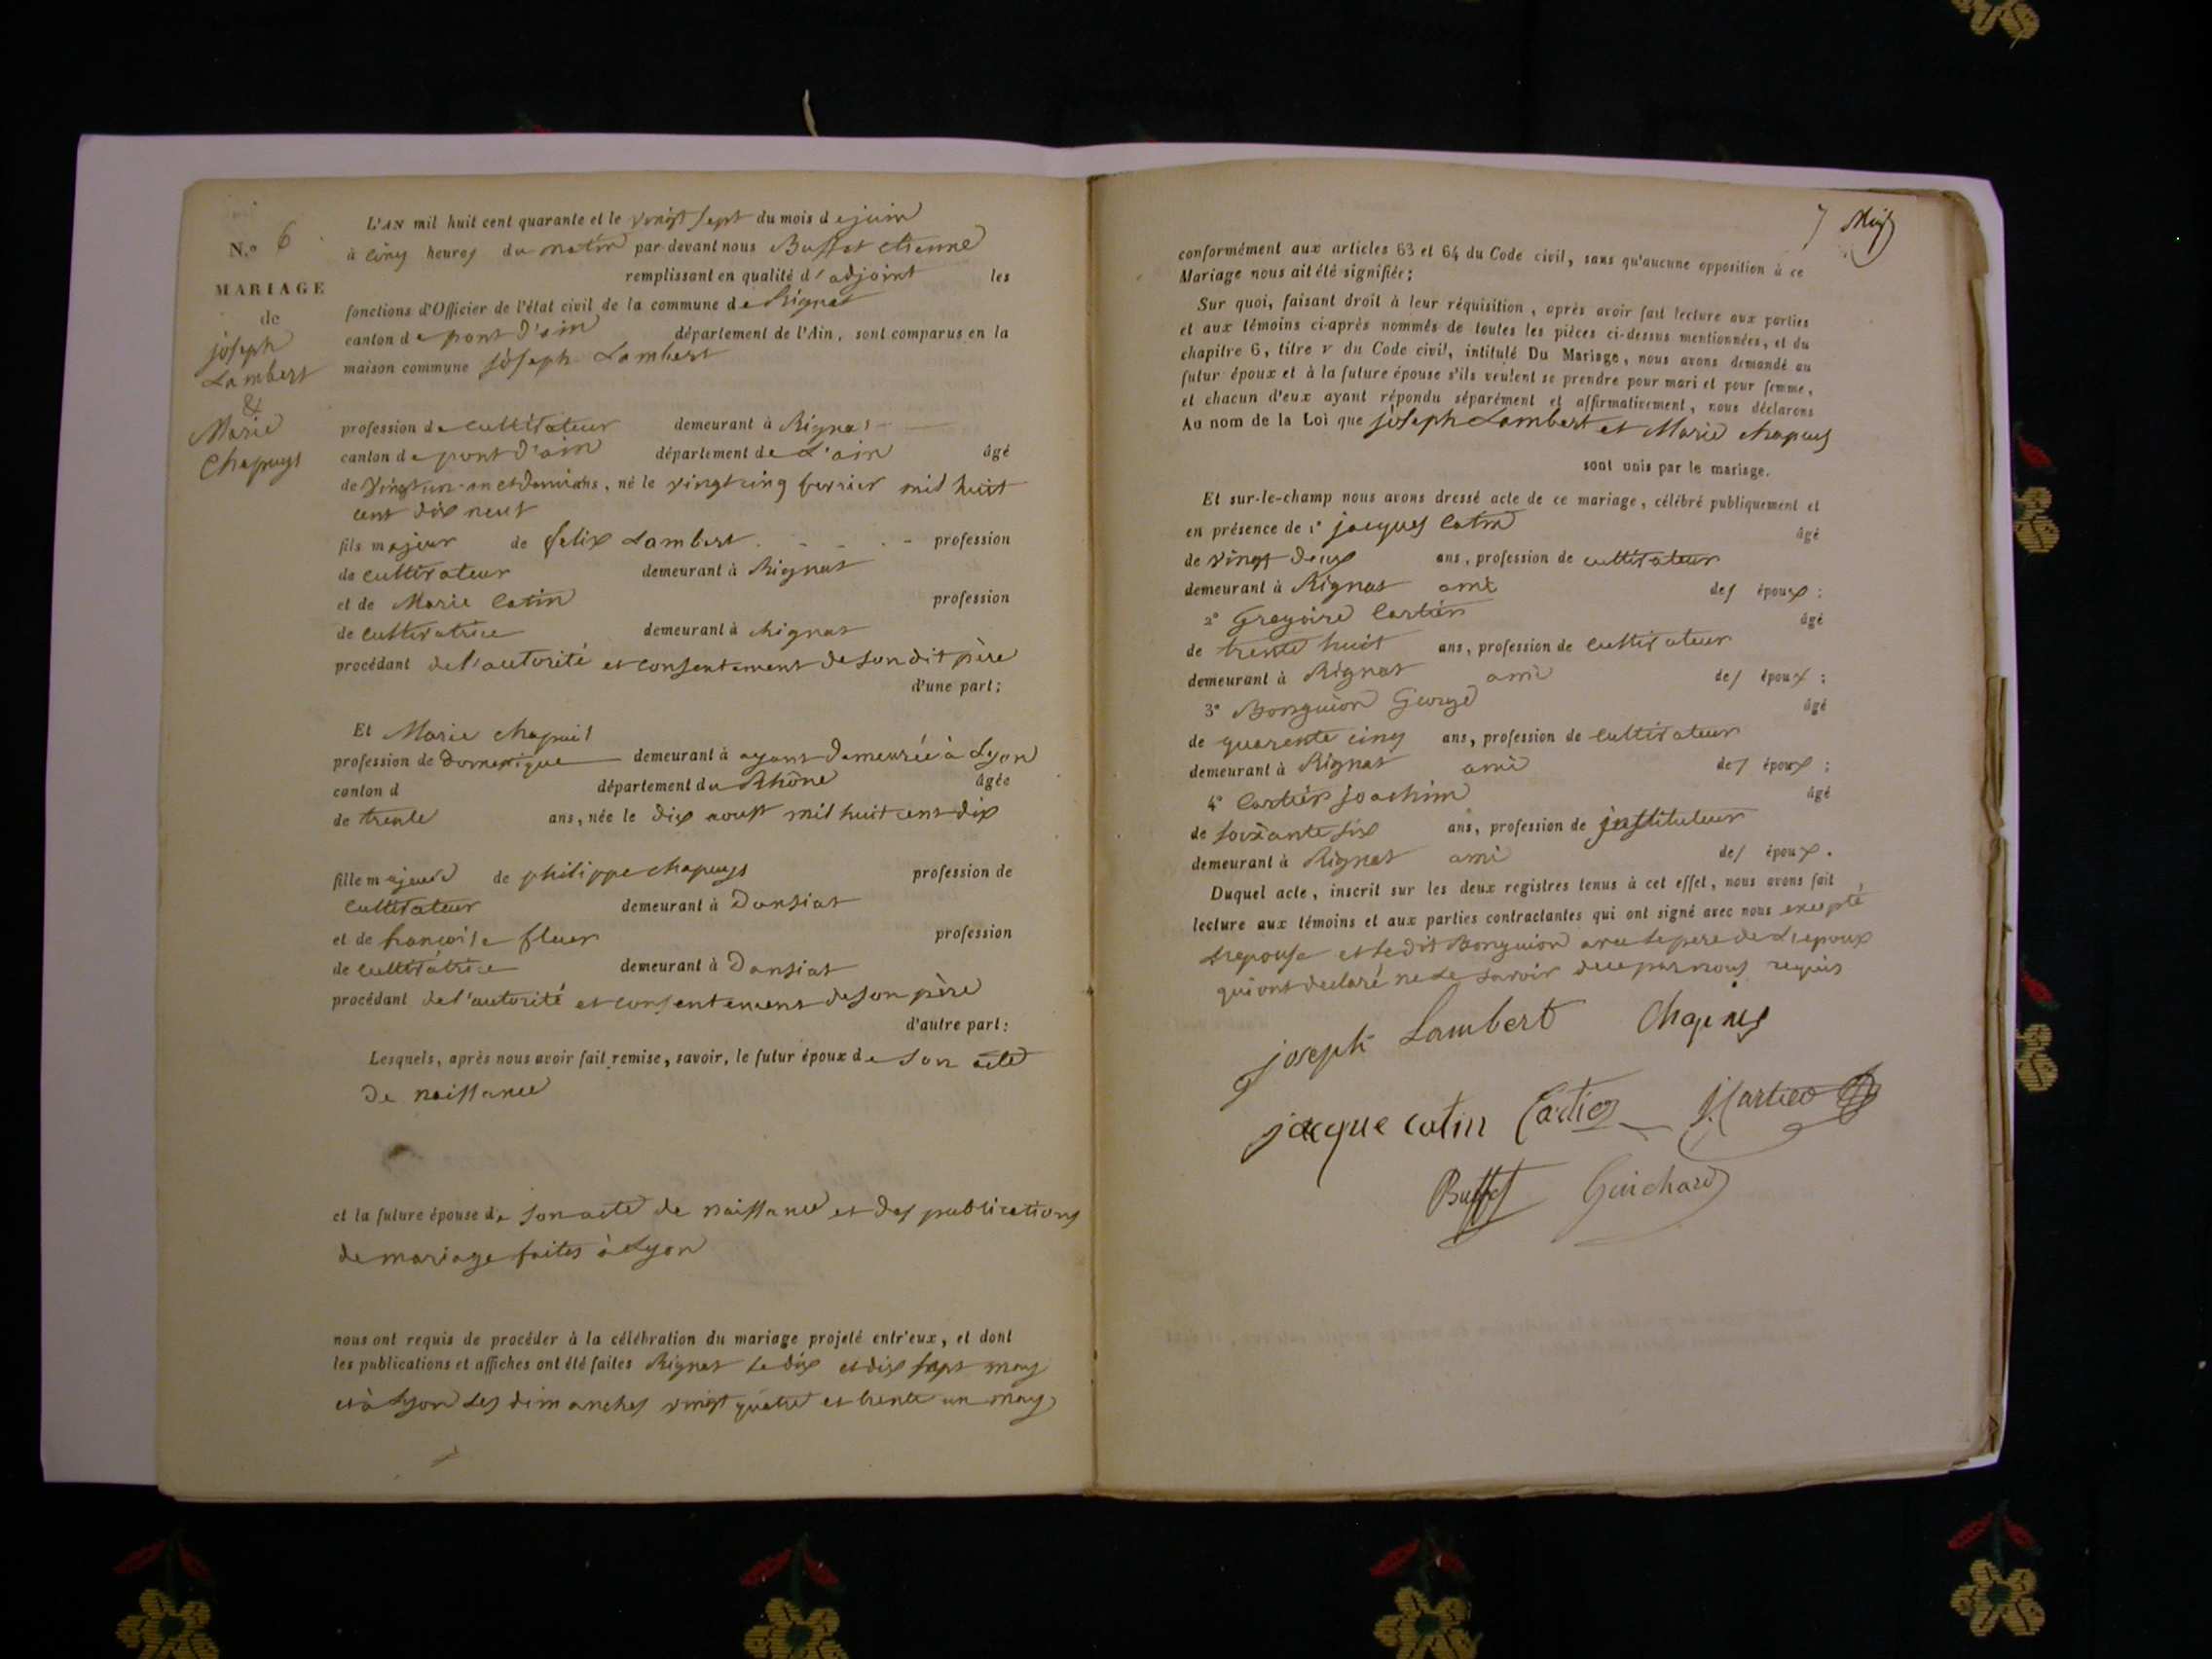 N.o 6
MARIAGE
de
joseph
Lambert
&
Marie
Chapuys
L'AN mil huit cent quarante et le vingt sept du mois de juin
à cinq heures du matin par-devant nous Buffet etienne
remplissant en qualité d'adjoint les
fonctions d'Officier de l'état civil de la commune de Rignat
canton de pont d'ain département de l'Ain, sont comparus en la
maison commune joseph Lambert
profession de cultivateur demeurant à Rignat
canton de pont d'ain département de L'ain âgé
de vingt un an et demi ans, né le vingt cinq fevrier mil huit
cent dix neuf
fils majeur de felix Lambert profession
de cultivateur demeurant à Rignat
et de Marie Catin profession
de cultivatrice demeurant à Rignat
procédant de l'autorité et consentement de son dit père
d'une part;
Et Marie chapuis
profession de domestique demeurant à ayant demeurée à Lyon
canton d département du Rhône âgée
de trente ans, née le dix aoust mil huit cent dix
fille majeure de philippe chapuys profession de
cultivateur demeurant à Dansiat
et de francoise profession
de cultivatrice demeurant à Dansiat
procédant de l'autorité et consentement de son père
d'autre part:
Lesquels, après nous avoir fait remise, savoir, le futur époux de son acte
de naissance
et la future épouse de son acte de naissance et des publications
de mariage faites à Lyon
nous ont requis de procéder à la célébration du mariage projeté entr'eux, et dont
les publications et affiches ont été faites Rignat le dix et dix sept may
et à Lyon les dimanches vingt quatre et trente un may
7
conformément aux articles 63 et 64 du Code civil, sans qu'aucune opposition à ce
Mariage nous ait été signifiée;
Sur quoi, faisant droit à leur réquisition, après avoir fait lecture aux parties
et aux témoins ci-après nommés de toutes les pièces ci-dessus mentionnées, et du
chapitre 6, titre v du Code civil, intitulé Du Mariage, nous avons demandé au
futur époux et à la future épouse s'ils veulent se prendre pour mari et pour femme,
et chacun d'eux ayant répondu séparément et affirmativement, nous déclarons
Au nom de la Loi que joseph Lambert et Marie chapuys
sont unis par le mariage.
Et sur-le-champ nous avons dressé acte de ce mariage, célébré publiquement et
en présence de 1° jacques Catin âgé
de vingt deux ans, profession de cultivateur
demeurant à Rignat ami des époux:
2° Gregoire Cartier âgé
de trente huit ans, profession de cultivateur
demeurant à Rignat ami des époux:
3° Bonguion George âgé
de quarente cinq ans, profession de cultivateur
demeurant à Rignat ami des époux:
4° Cartier joachim âgé
de soixante six ans, profession de instituteur
demeurant à Rignat ami des époux.
Duquel acte, inscrit sur les deux registres tenus à cet effet, nous avons fait
lecture aux témoins et aux parties contractantes qui ont signé avec nous excepté
L'epouse et le dit Bonguion avec le pere de L'epoux
qui ont declaré ne le savoir de ce par nous requis
joseph Lambert Chapuis
jacque catin Cartier J Cartier
Buffet Guichard